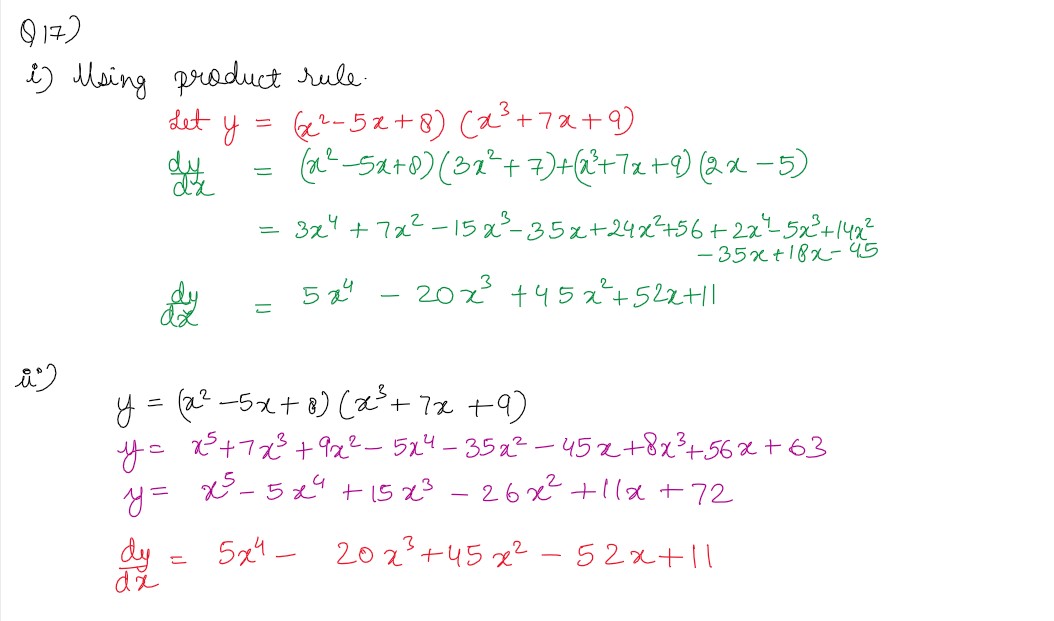 Q17)
i) Using product rule.
Let y = (x²-5x+8) (x³+7x+9)
dy/dx = (x²-5x+8)(3x²+7)+(x³+7x+9)(2x-5)
= 3x⁴+7x²-15x³-35x+24x²+56+2x⁴-5x³+14x²
-35x+18x-45
dy/dx = 5x⁴ - 20x³ +45x²+52x+11
ii)
y = (x²-5x+8)(x³+7x+9)
y = x⁵+7x³+9x²-5x⁴-35x²-45x+8x³+56x+63
y = x⁵-5x⁴+15x³-26x²+11x+72
dy/dx = 5x⁴- 20x³+45x²-52x+11